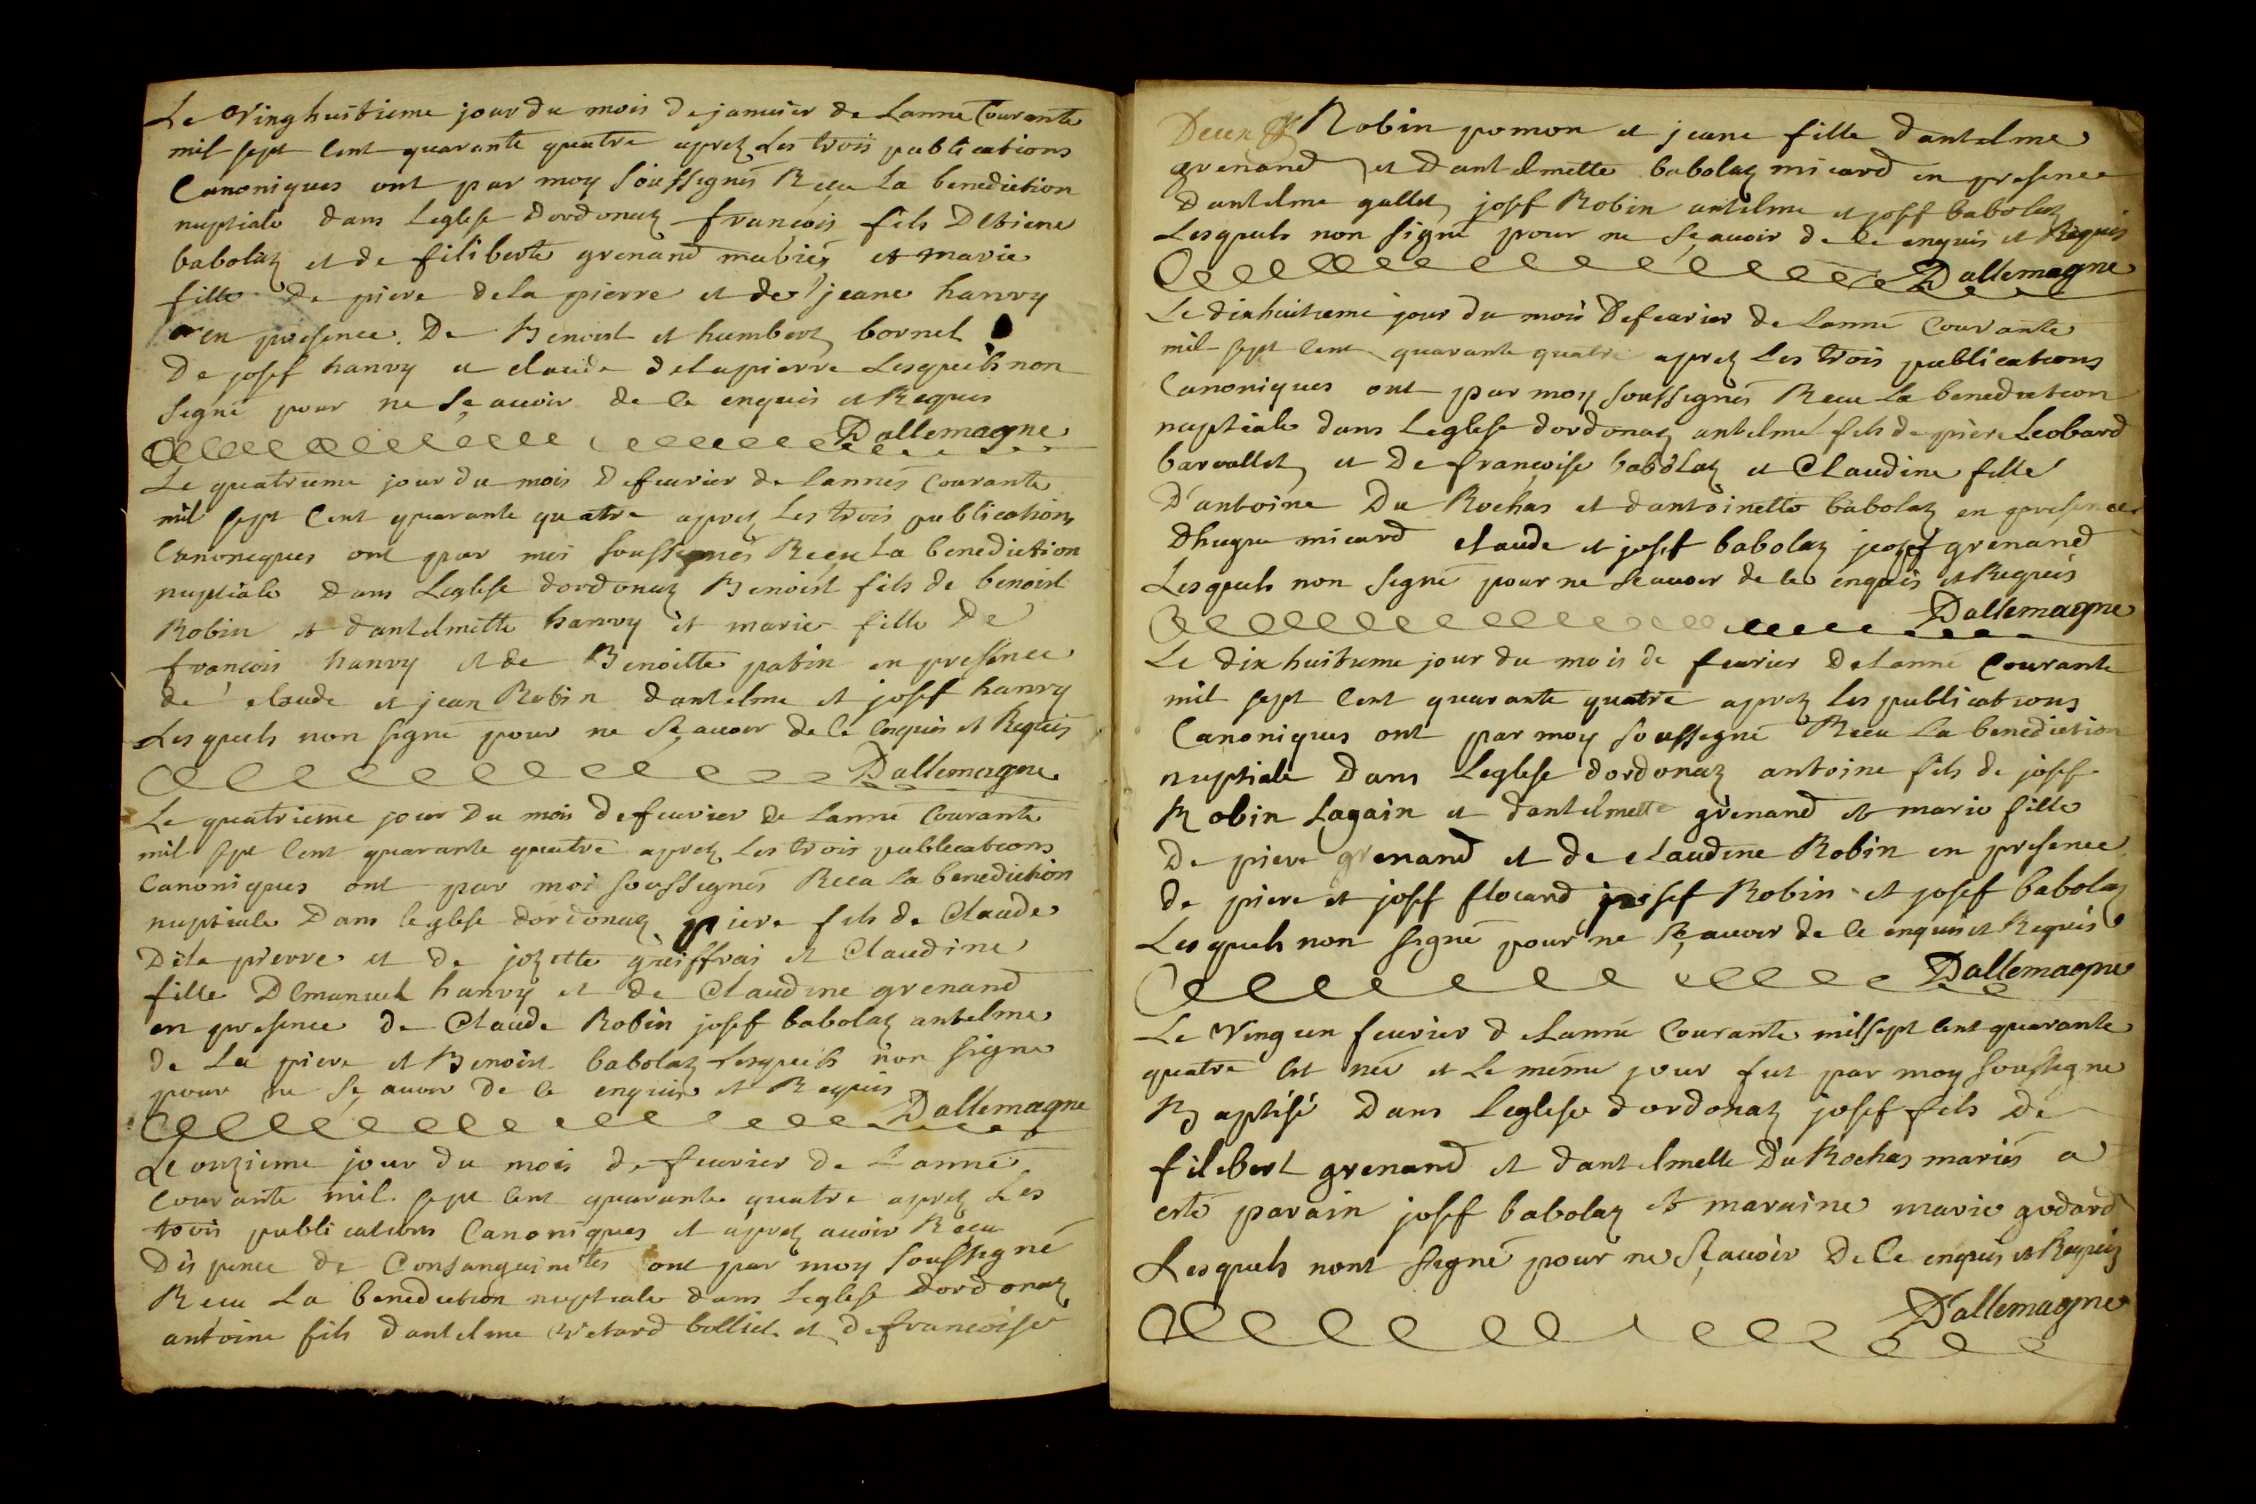 Le Vinghuitieme jour du mois de januier de Lanné Courante
mil sept Cent quarante quatre aprez Les trois publications
Canoniques ont par moy Soussignés Reçeu La benediction
nuptiale dans Leglese dordonaz francois fils Detiene
babolaz et de filiberte grenand mariés et marie
fille de piere dela pierre et de jeane hanvy
en presence De Benoist et humbert bornet
De josef hanvy et claude delapierre Lesquels non
Signé pour ne Sçauoir de Ce enquis et Requis
Dallemagne
Le quatrieme jour du mois defeurier de Lannés Courante
mil sept Cent quarante quatre aprez Les trois publications
Canoniques ont par moi Soussignés Reçeu La benediction
nuptiale dans Leglese dordonaz Benoist fils de benoist
Robin et dantelmette hanvy et marie fille de
françois hanvy et de Benoitte patin en presence
de claude et jean Robin dantelme et josef hanvy
Lesquels non signé pour ne Sçauoir de Ce Enquis et Requis
Dallemagne
Le quatrieme jour Du mois defeurier de Lanné Courante
mil sept Cent quarante quatre aprez Les trois publications
Canoniques ont par moi Soussignés Recu La benediction
nuptiale Dans leglese dordonaz piere fils de Claude
Dela pierre et de jozette greiffrai et Claudine
fille Demanuel hanvy et de Claudine grenand
en presence de Claude Robin josef babolaz antelme
de La piere et Benoist babolaz Lesquels non signe
pour ne Sçauoir de Ce enquis et Requis
Dallemagne
Le onzieme jour du mois de feurier de Lanné
Courante mil sept Cent quarante quatre aprez Les
trois publications Canoniques et aprez auoir Reçu
Dispence de Consanguinités ont par moy Soussigné
Recu La benediction nuptiale dans Leglese dordonaz
antoine fils dantelme bolliet et defrancoise
Robin pomon et jeane fille dantelme
grenand et dantelmette babolaz micard en presence
dantelme gallet josef Robin antelme et josf babolaz
Lesquels non signé pour ne Sçauoir de Ce enquis et Requis
Dallemagne
Le dixhuitieme jour du mois Defeurier de Lanné Courante
mil sept Cent quarante quatre aprez Les trois publications
Canoniques ont par moy Soussignés Recu La benediction
nuptiale dans Leglese dordonaz antelme fils de piere Leobard
barvallet et De françoise babolaz et Claudine fille
D'antoine Du Rochas et dantoinette babolaz en presence
Dhugue micard claude et josef babolaz josef grenand
Lesquels non Signé pour ne Scauoir de Ce enquis et Requis
Dallemagne
Le dixhuitieme jour du mois de feurier DeLanné Courante
mil sept Cent quarante quatre aprez Les publications
Canoniques ont par moy Soussigné Recu La benediction
nuptiale Dans Leglese dordonaz antoine fils de josef
Robin Lagain et dantelmette grenand et marie fille
De piere grenand et de claudine Robin en presence
de piere et josf flocard josef Robin et josef babolaz
Lesquels non Signé pour ne Sçauoir de Ce enquis et Requis
Dallemagne
Le Vingun feurier deLanné Courante milsept Cent quarante
quatre Est née et Le méme jour fut par moy Soussigne
Baptisé Dans Leglese dordonaz josef fils De
filebert grenand et dantelmette DuRochas mariés a
esté parain josf babolaz et maraine marie godard
Lesquels nont Signé pour ne Sçauoir De Ce enquis et Requis
Dallemagne